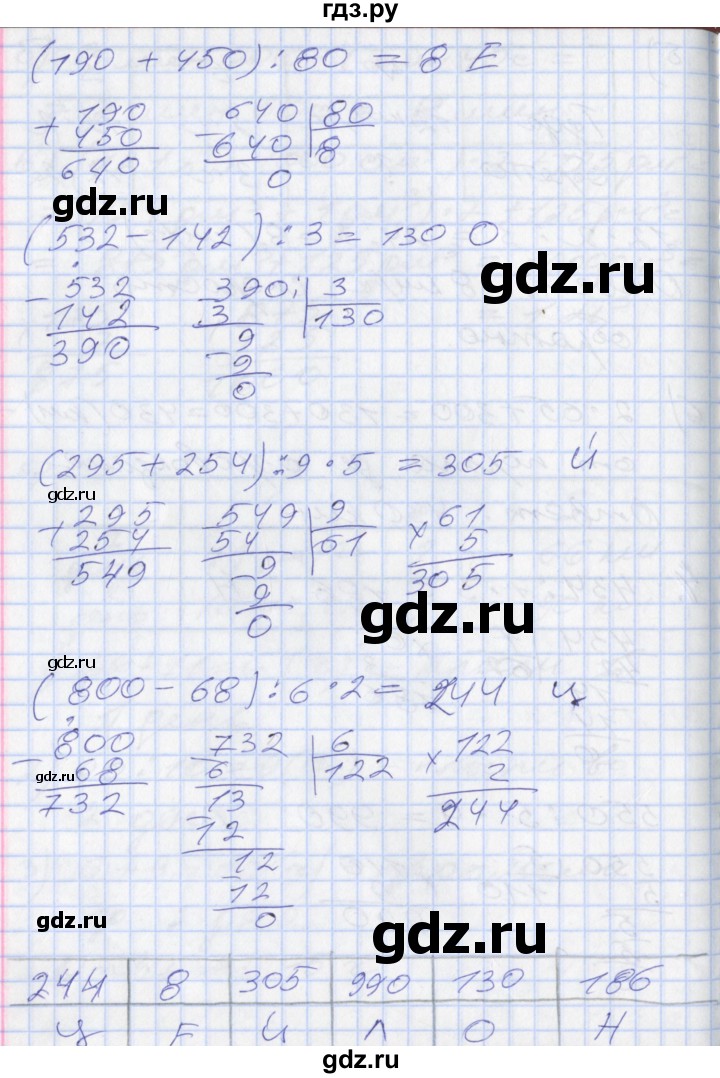 гдз.ру
(190 + 450) : 80 = 8 Е
+ 190   - 640 | 80
450   640   8
640   0
gdz.ru
(532 - 142) : 3 = 130 О
gdz.ru
- 532   - 390 | 3
142   3   130
390   - 9
9
0
(295 + 254) : 9 · 5 = 305 Й
gdz.ru
+ 295   - 549 | 9   × 61
254   54   61   5
549   - 9   305
9
0
gdz.ru
gdz.ru
(800 - 68) : 6 · 2 = 244 ц
- 800   - 732 | 6   × 122
gdz.ru
68   6   122   2
732   - 13   244
12
- 12
12
0
gdz.ru
gdz.ru
244 | 8 | 305 | 990 | 130 | 186
Ц | Е | Й | Л | О | Н
gdz.ru